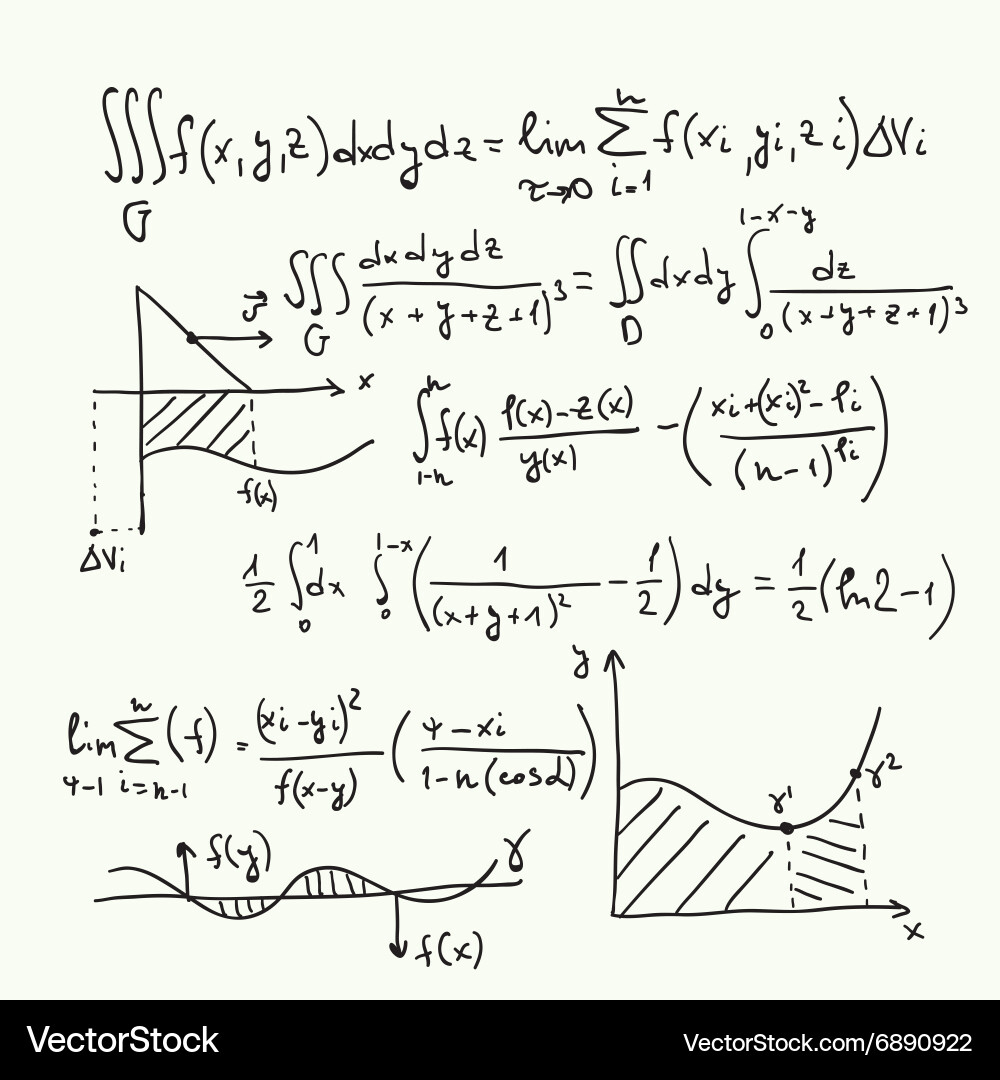 ∭_G f(x,y,z)dxdydz = lim_{τ→0} ∑_{i=1}^{n} f(xi,yi,zi)ΔVi
∭_G dxdydz/(x+y+z+1)^3 = ∬_D dxdy ∫_0^{1-x-y} dz/(x+y+z+1)^3
x
∫_{1-n}^{n} f(x) (f(x)-z(x))/y(x) - ((xi+(xi)^2-fi)/(n-1)^{fi})
f(x)
ΔVi
1/2 ∫_0^1 dx ∫_0^{1-x} (1/(x+y+1)^2 - 1/2) dy = 1/2(ln2-1)
y
lim_{4-1} ∑_{i=n-1}^{n} (f) = (xi-yi)^2/f(x-y) ((4-xi)/(1-n(cosα)))
γ2
γ1
f(y)
γ
f(x)
x
VectorStock
VectorStock.com/6890922